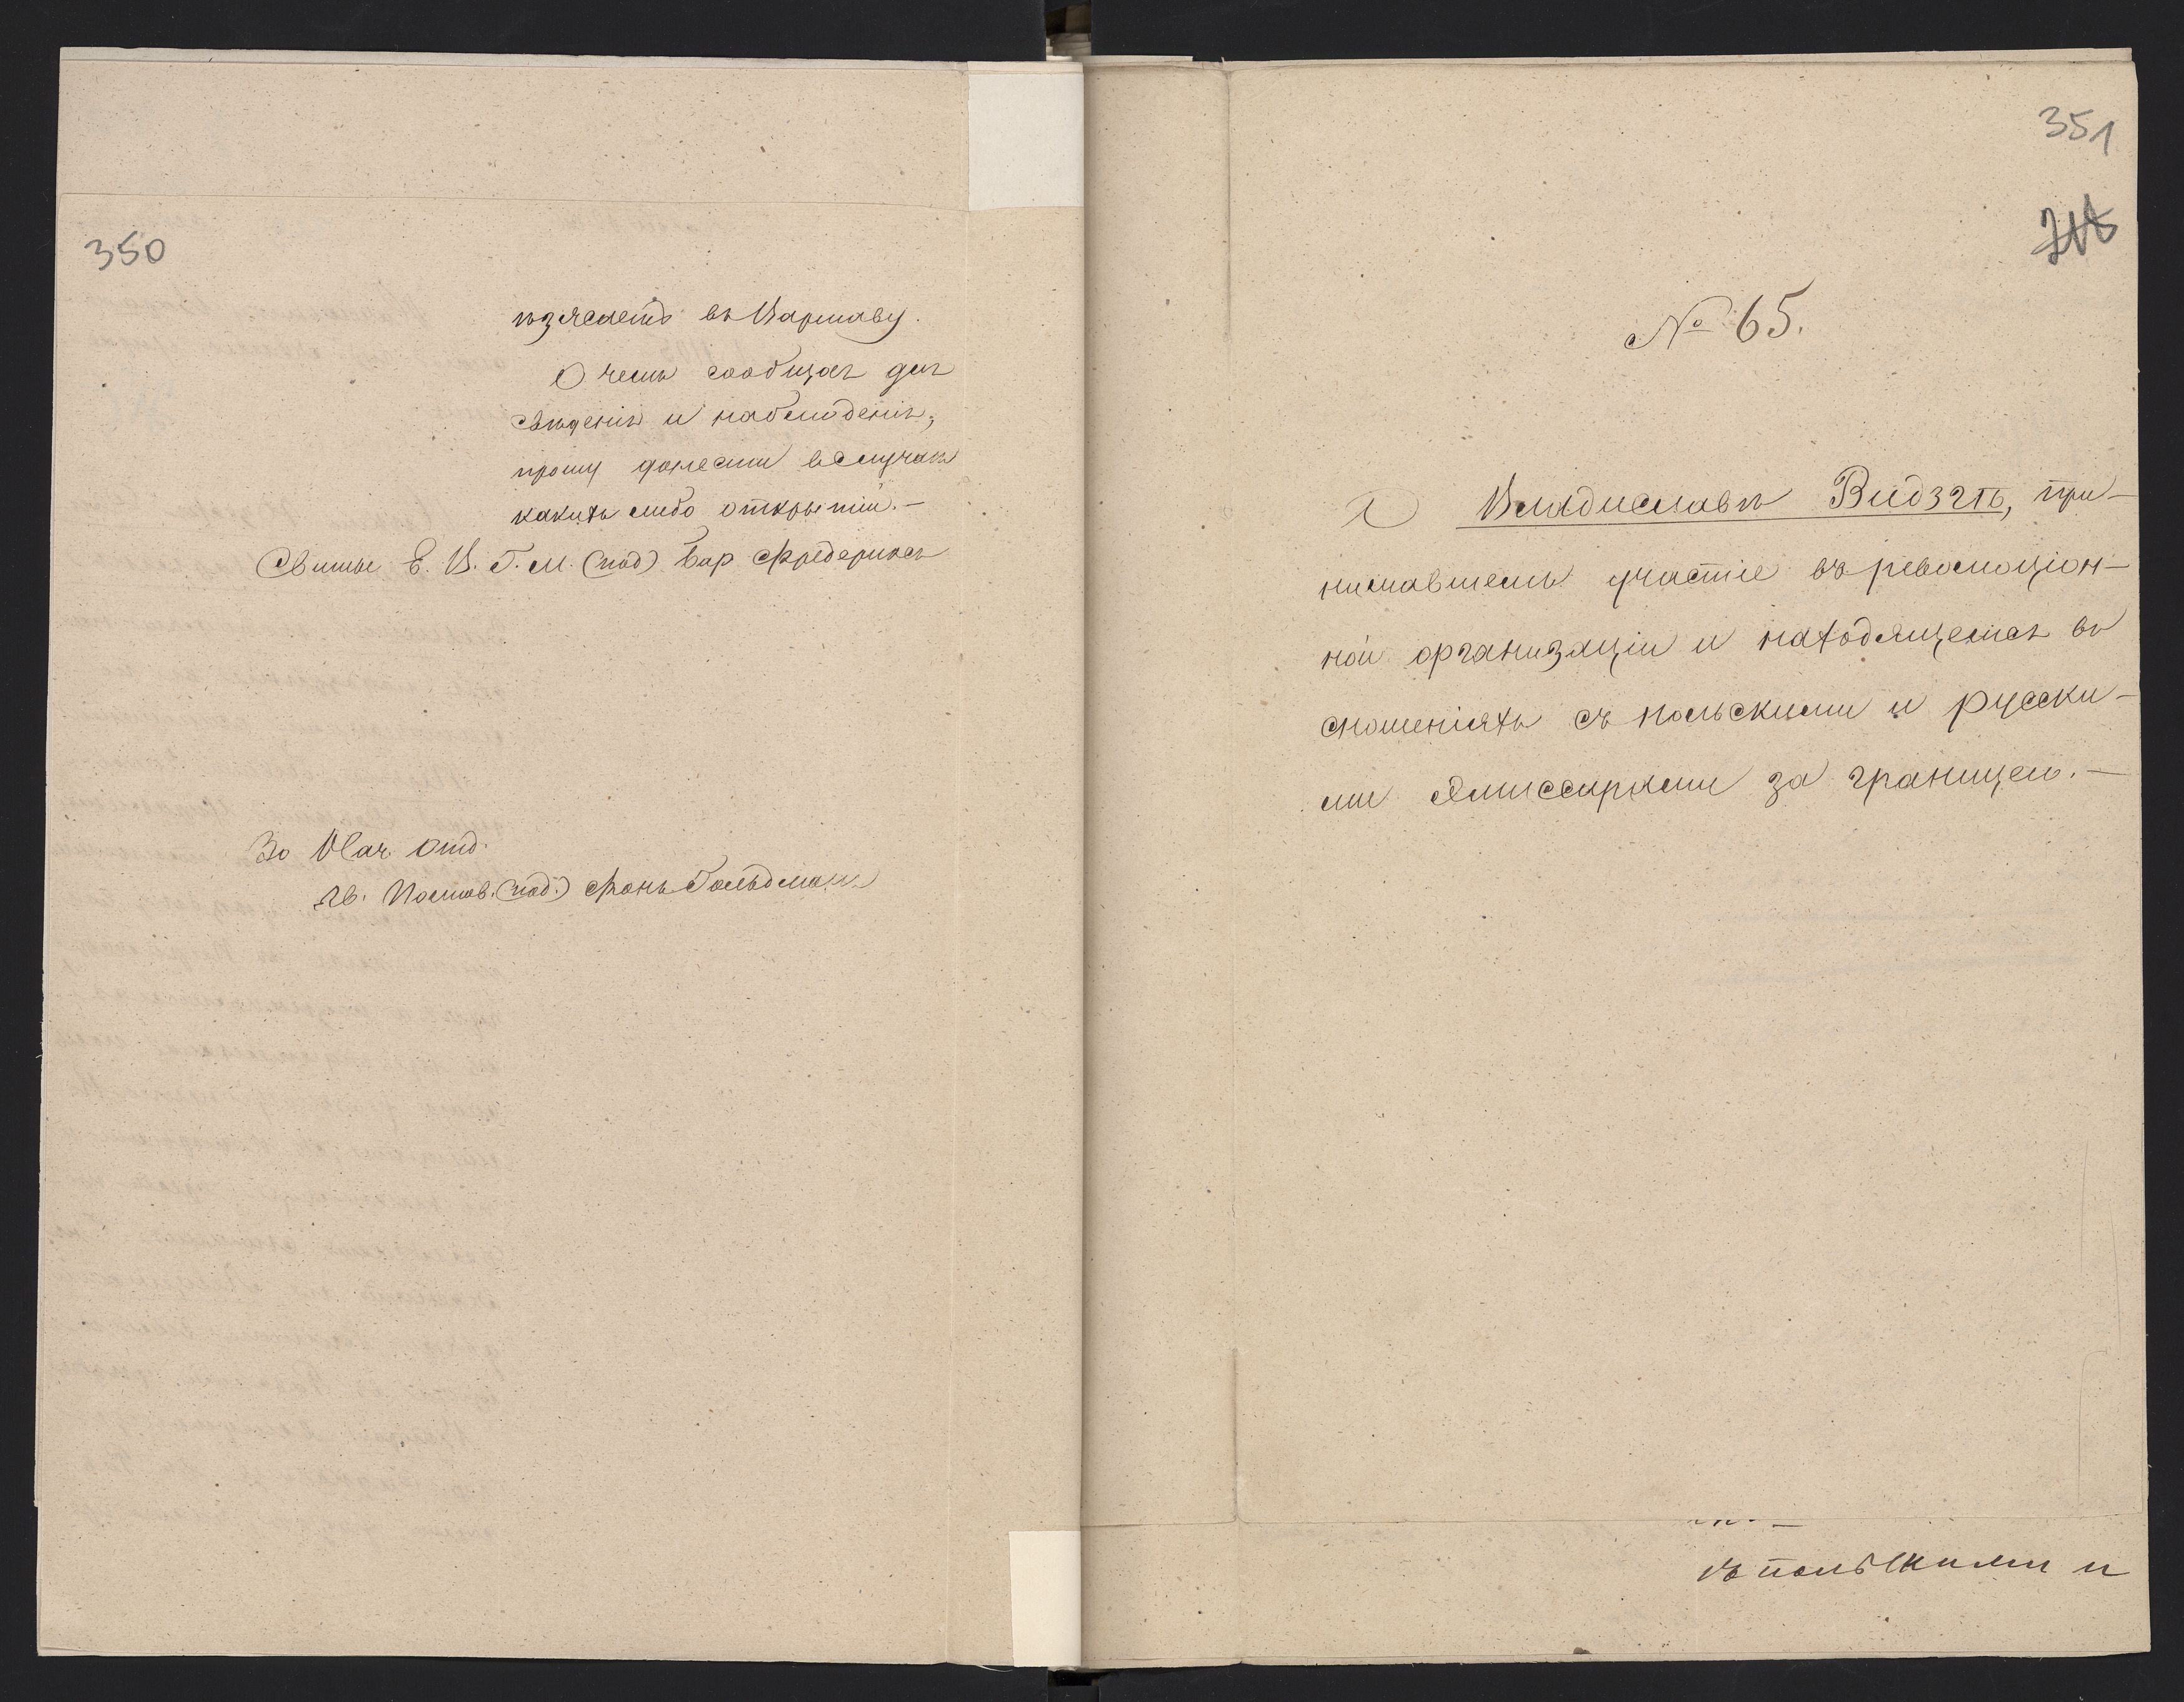 350
въ Варшаву.
О чемъ сообщая для
свѣдѣнія и наблюденія,
прошу донести въ случаѣ
какихъ либо открытій. —
Свиты Е. В. Г. М. (под) Бар Фредериксъ
За Нач. Отд.
(под.) фонъ Гольдманъ
351
№ 65.
О Владиславѣ Видзгѣ, при-
нимавшемъ участіе въ революціон-
ной организаціи и находящемся въ
сношеніяхъ съ польскими и русски-
ми эмиссарами за границею. —
съ польскими и